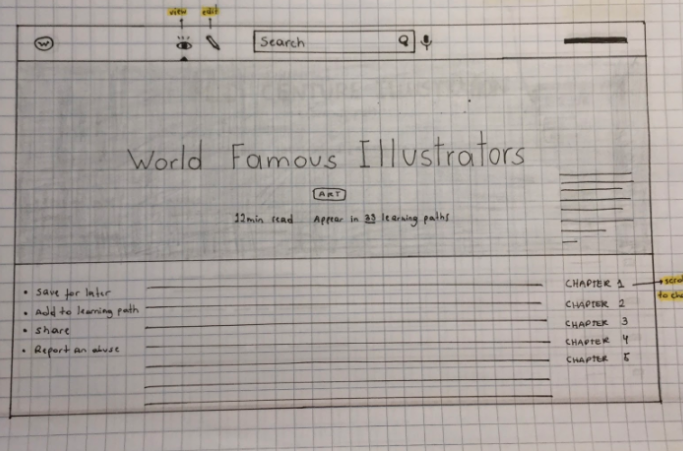 view edit
W Search
World Famous Illustrators
ART
12min read Appear in 39 learning paths
• save for later
• add to learning path
• share
• Report an abuse
CHAPTER 1
CHAPTER 2
CHAPTER 3
CHAPTER 4
CHAPTER 5
to